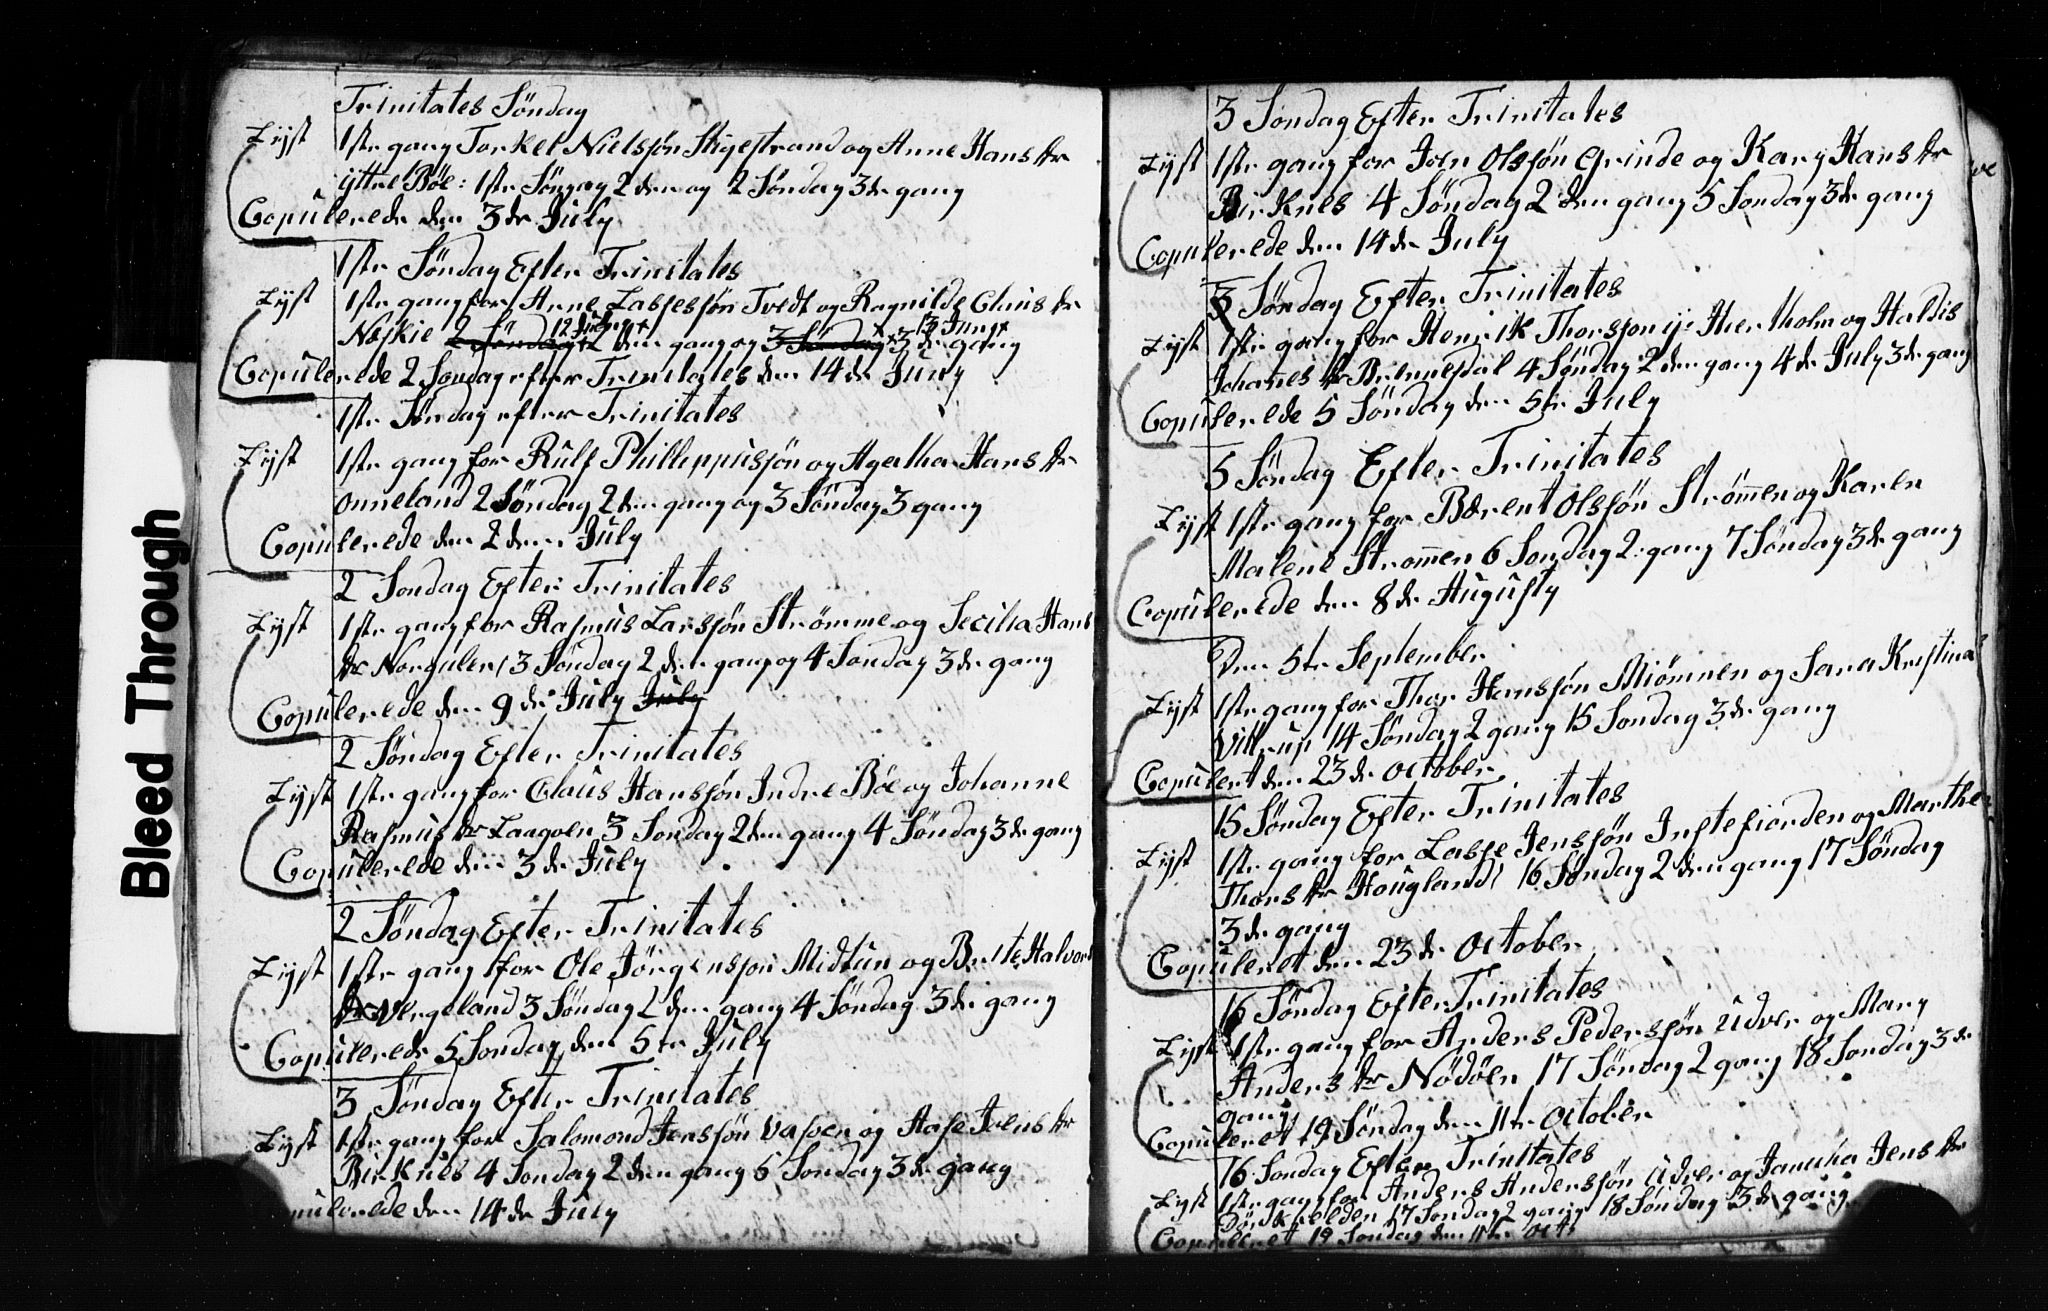 Bleed Through
Trinitates Söndag
Lÿst 1ste gang Torkel Nielssön Stigestrand og Anne Hans dr
ÿttre Böe: 1ste Söndag 2den og 2 Söndag 3de gang
Copulerede den 3de Julÿ
1ste Söndag Efter Trinitates
Lÿst 1ste gang for Arne Lassessön Tvedt og Ragnilde Claus dr
Neskie 2 Söndag 12 Juny 2 den gang og 3 Söndag 13 Juny 3 de gang
Copulerede 2 Söndag efter Trinitates den 14 de Juny
1ste Söndag efter Trinitates
Lÿst 1ste gang for Rulf Phillippussön og Agatha Hans dr
onneland 2 Söndag 2den gang og 3 Söndag 3 gang
Copulerede den 2den Julÿ
2 Söndag Efter Trinitates
Lÿst 1ste gang for Rasmus Larssön Strömme og Secilia Hans
dr Norgulen 3 Söndag 2 den gang og 4 Söndag 3de gang
Copulerede den 9 de July July
2 Söndag Efter Trinitates
Lÿst 1ste gang for Claus Hanssön Indre Böe og Johanne
Rasmus dr Langöen 3 Söndag 2den gang 4 Söndag 3de gang
Copulerede den 3 de July
2 Söndag Efter Trinitates
Lÿst 1ste gang for Ole Jörgenssön Midtun og Brite Halvors
dr Vergeland 3 Söndag 2 den gang 4 Söndag 3de gang
Copulerede 5 Söndag den 5te July
3 Söndag Efter Trinitates
Lÿst 1ste gang for Salomond Jenssön Vasöen og Aase Joens dr
Birknes 4 Söndag 2 den gang 5 Söndag 3de gang
pulerede den 14 de July
3 Söndag Efter Trinitates
Lÿst 1ste gang for Joen Olssön Grinde og Kary Hans dr
Birknes 4 Söndag 2 den gang 5 Söndag 3de gang
Copulerede den 14 de July
3 Söndag Efter Trinitates
Lÿst 1ste gang for Henrik Thorssön Hiertholm og Haldis
Johanes dr Brennesdal 4 Söndag 2 den gang 4 de July 3de gang
Copulerede 5 Söndag den 5te July
5 Söndag Efter Trinitates
Lÿst 1ste gang for Bærent Olssön Strömmen og Karen
Malene Strommen 6 Söndag 2. gang 7 Söndag 3de gang
Copulerede den 8 de Augusty
Den 5te September
Lÿst 1ste gang for Thor Hanssön Miömnen og Sara Kristina
Villrup 14 Söndag 2 gang 15 Söndag 3de gang
Copulert den 23 de October
15 Söndag Efter Trinitates
Lÿst 1ste gang for Lasse Jenssön Instefiorden og Marthe
Thors dr Hougland 16 Söndag 2 den gang 17 Söndag
3 de gang
Copuleret den 23 de October
16 Söndag Efter Trinitates
Lÿst 1ste gang for Anders Pederssön Udvær og Mary
Anders dr Nödöen 17 Söndag 2 gang 18 Söndag 3 de
gang
Copuleret 19 Söndag den 11te October
16 Söndag Efter Trinitates
Lÿst 1ste gang for Anders Anderssön Udver og Jens dr
17 Söndag 2 gang 18 Söndag 3de gang
Copuleret 19 Söndag den 11te Oct: